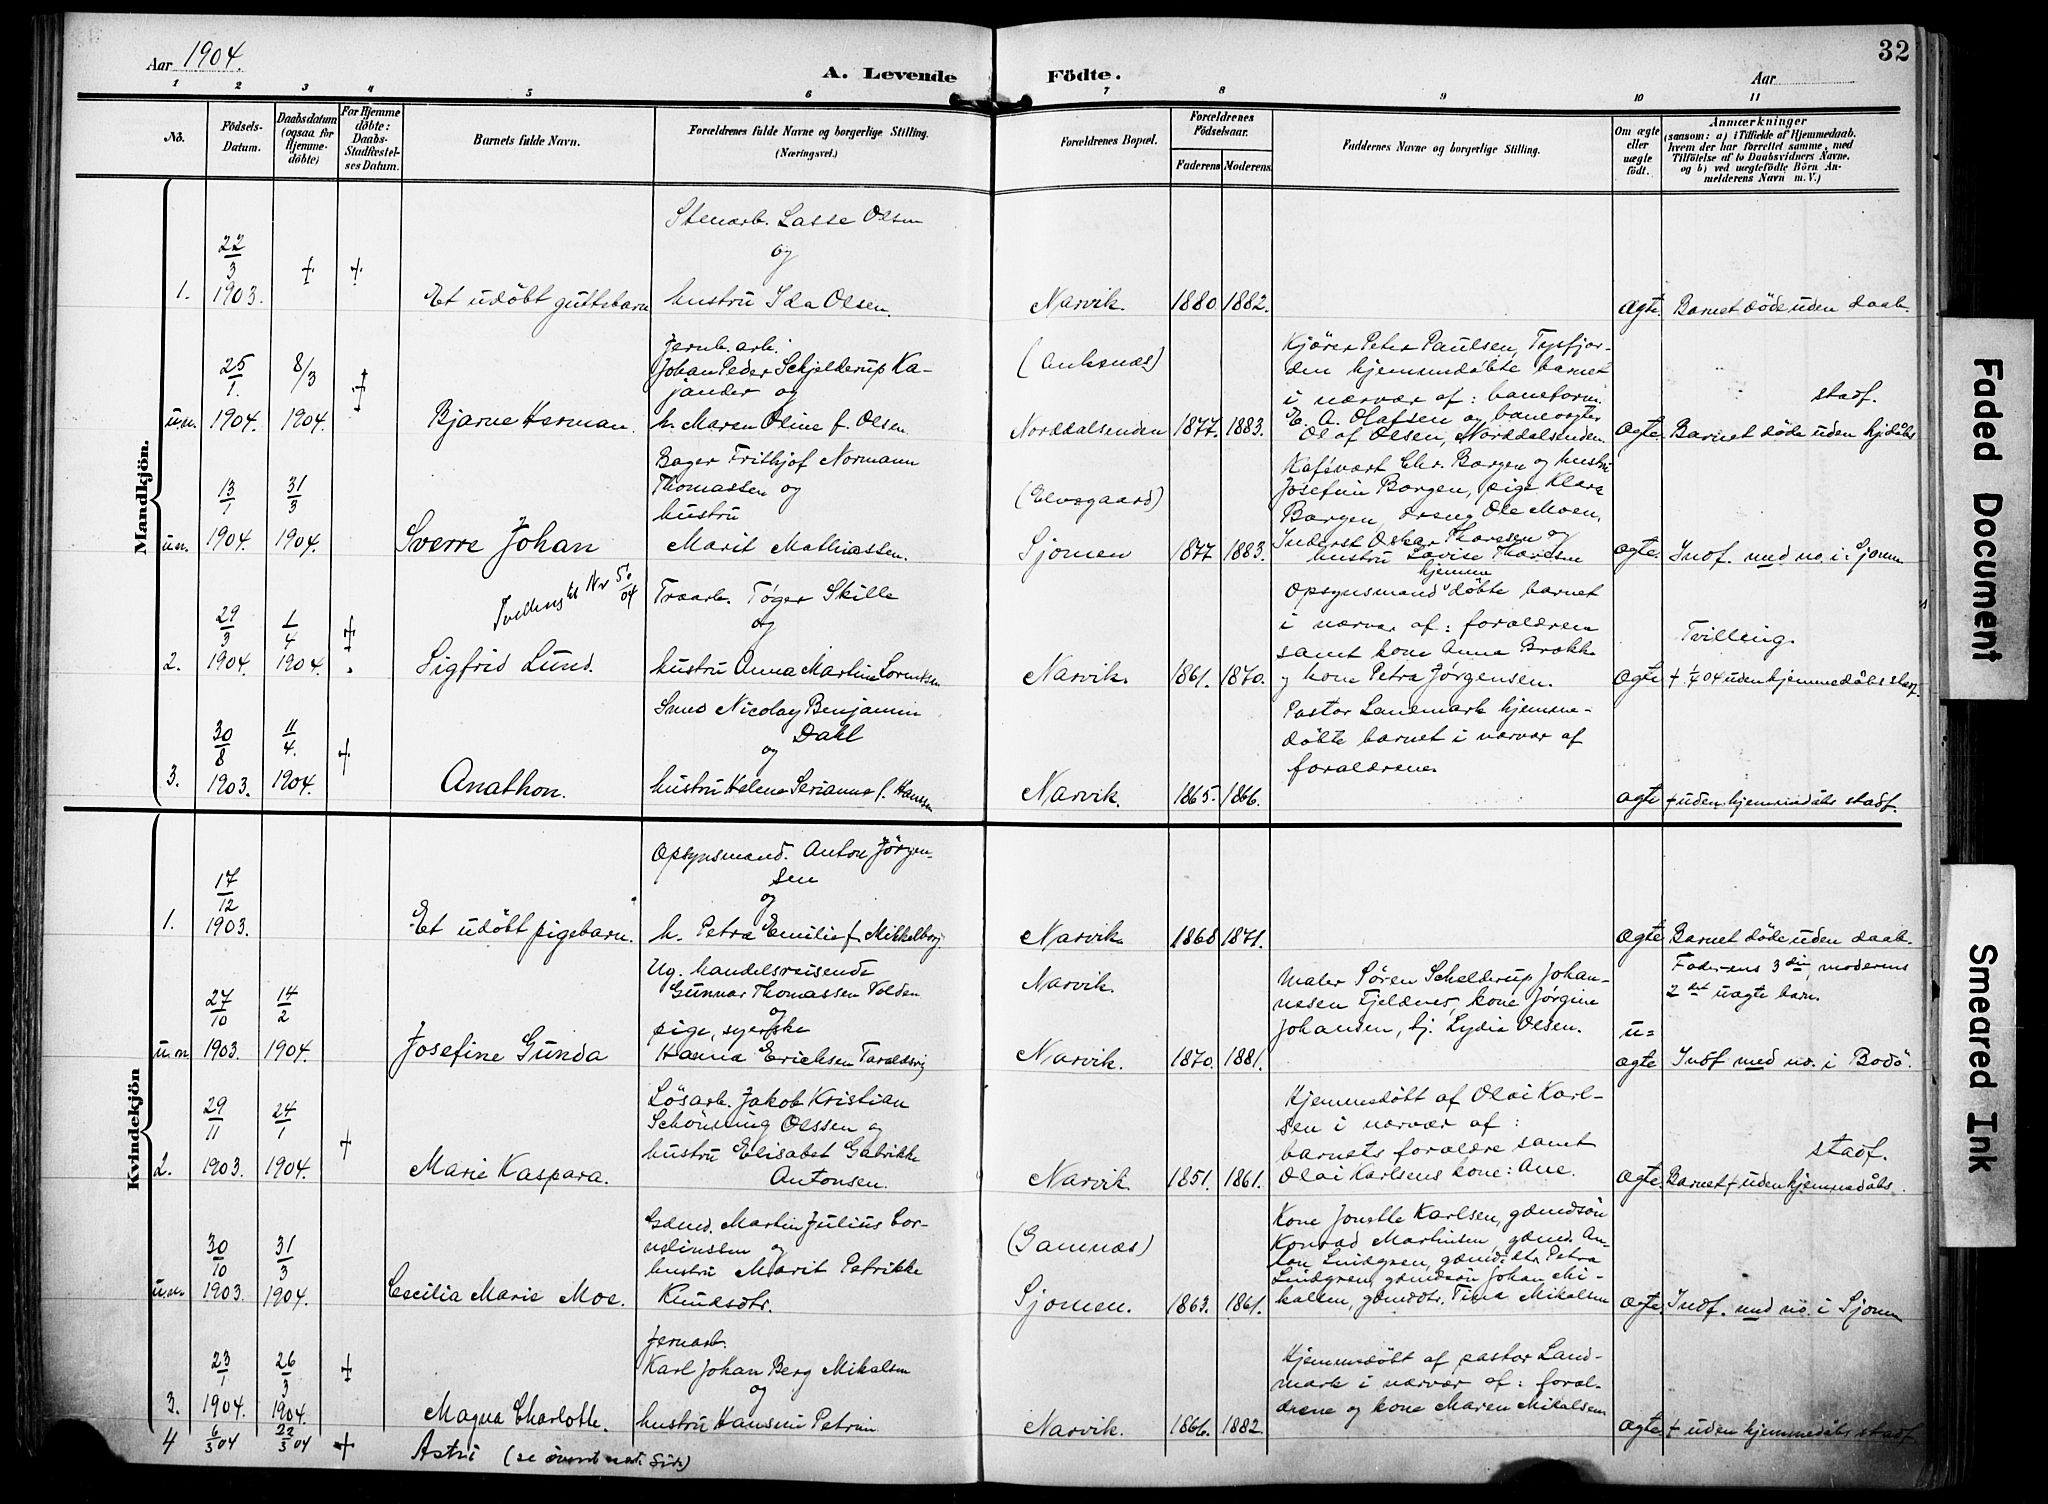 Aar 1904.
A. Levende Födte.
Aar
32
1 2 3 4 5 6 7 8 9 10 11
No.
Födsels-Datum.
Daabsdatum (ogsaa for Hjemme-döbte)
For Hjemme döbte: Daabs-Stadfæstel-ses Datum.
Barnets fulde Navn.
Forældrenes fulde Navne og borgerlige Stilling.
(Næringsvei.)
Forældrenes Bopæl.
Forældrenes Födselsaar.
Faderens Moderens
Faddernes Navne og borgerlige Stilling.
Om ægte eller uægte födt.
Anmærkninger
(saasom: a) i Tilfælde af Hjemmedaab,
hvem der har forrettet samme, med
Tilföielse af to Daabsvidners Navne.
og b) ved uægtefödte Börn An-
melderens Navn m. V.)
Mandkjön.
1.
22/3 1903.
+ +
Et udöbt guttebarn
Stenarb. Lasse Olsen
og
hustru Ida Olsen.
Narvik.
1880 1882.
ægte.
Barnet döde uden daab.
u.n.
25/1 1904.
8/3 1904.
Bjarne Herman.
Jernb. arb.
Johan Peder Schjelderup Ka-
jander og
h. Maren Oline f. Olsen.
(Ankenæs)
Norddalsenden
1877. 1883.
Kjörer Peter Paulsen, Tysfjor-
den hjemmedöbte barnet
i nærvær af: baneform.
E. A. Olafsen og banevogter
Olaf Olsen, Norddalsenden.
ægte.
stadf.
Barnet döde uden hj.dåbs
u.n.
13/1 1904.
31/3 1904.
Sverre Johan
Bager Frithjof Normann
Thomassen og
hustru
Marit Mathiassen.
(Elvegaard)
Sjomen
1877 1883.
Kafévært Chr. Borgen og hustru
Josefine Borgen, pige Klara
Borgen, dreng Ole Moen,
Inderst Oskar Thoresen og
hustru Lovise Thoresen
ægte.
Indf. med no. i: Sjomen
2.
29/3 1904.
1/4 1904.
Tvilling til Nr 50/04
Sigfrid Lund.
Træarb. Töger Skille
og
hustru Anna Martine Lorentsen
Narvik.
1861. 1870.
hjemme
Opsynsmand döbte barnet
i nærvær af: forældrene
samt kone Anna Brække
og kone Petra Jörgensen.
ægte
Tvilling.
+ 1/4 04 uden hjemmedåbs stadf.
3.
30/8 1903.
11/4 1904.
+
Anathon.
Smed Nicolay Benjamin
Dahl
og
hustru Helene Serianne f. Hanssen
Narvik.
1865. 1866.
Pastor Landmark hjemme-
döbte barnet i nærvær af
forældrene.
ægte
+ uden hjemmedåbs stadf.
Kvindekjön
1.
17/12 1903.
Et udöbt pigebarn.
Opsynsmand. Anton Jörgen-
sen
og
h. Petra Emilie f. Mikkelborg
Narvik
1868 1871.
ægte
Barnet döde uden daab.
u.n
27/10 1903.
14/2 1904.
Josefine Gunda
Ug. handelsreisende
Gunnar Thomassen Volden
og
pige, syerske
Hanna Erichsen Taraldsvig
Narvik.
Narvik.
1870. 1881.
Maler Sören Schelderup Johan-
nesen Fjeldnes, kone Jörgine
Johansen, hj. Lydia Olsen.
u-
ægte
Faderens 3die, moderens
2det uægte barn.
Indf med no. i Bodö.
2.
29/11 1903.
24/1 1904.
+
Marie Kaspara.
Lösarb. Jakob Kristian
Schönning Olssen og
hustru Elisabet Gabrikke
Antonsen.
Narvik.
1851. 1861.
Hjemmedöbt af Olai Karl-
sen i nærvær af:
barnets forældre samt
Olai Karlsens kone: Ane.
ægte.
stadf.
Barnet + uden hjemmedåbs
u.n.
30/10 1903.
31/3 1904.
Cecilia Marie Moe.
Gdmd. Martin Julius Cor-
neliussen og
hustru Marit Petrikke
Knudsdtr.
(Gamnæs)
Sjomen.
1863. 1861.
Kone Jonette Karlsen, gdmdsön
Konrad Martinsen, gdmd. An-
ton Lindgren, gdmd.dtr. Petra
Lindgren, gdmdsön Johan Mi-
kalsen, gdmddtr. Tina Mikalsen
ægte.
Indf. med no. i Sjomen
3.
23/1 1904.
26/3 1904.
Magna Charlotte.
Jernarb.
Karl Johan Berg Mikalsen
og
hustru Hansine Petrine
Narvik.
1866. 1882.
Hjemmedöbt af pastor Land-
mark i nærvær af: foræl-
drene og kone Maren Mikalsen
ægte
+ uden hjemmedåbs stadf.
4
6/3 04
22/3 04
+
Astri (se överst næste Side)
Faded Document
Smeared Ink